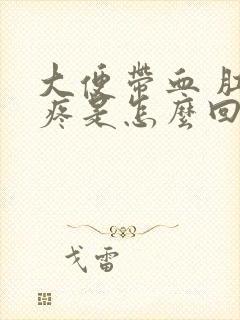 大便帶血 肚
疼是怎麼回
戈雷